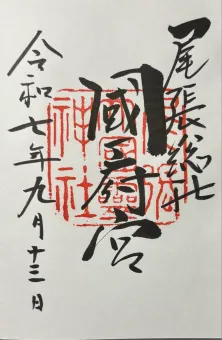 尾張総社
國府宮
神社
令和七年九月十三日